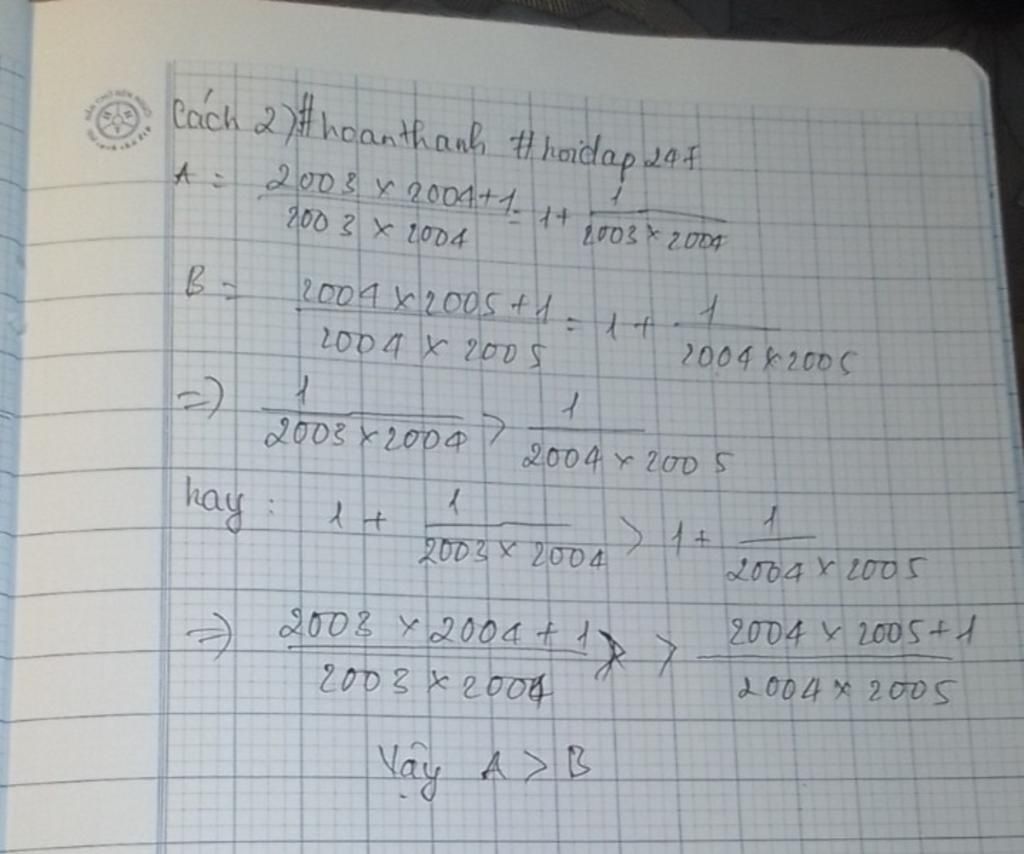 Cách 2) #hoanthanh #hoidap247
A = \frac{2003 × 2004 + 1}{2003 × 2004} = 1 + \frac{1}{2003 × 2004}
B = \frac{2004 × 2005 + 1}{2004 × 2005} = 1 + \frac{1}{2004 × 2005}
=> \frac{1}{2003 × 2004} > \frac{1}{2004 × 2005}
hay : 1 + \frac{1}{2003 × 2004} > 1 + \frac{1}{2004 × 2005}
=> \frac{2003 × 2004 + 1}{2003 × 2004} > \frac{2004 × 2005 + 1}{2004 × 2005}
Vậy A > B